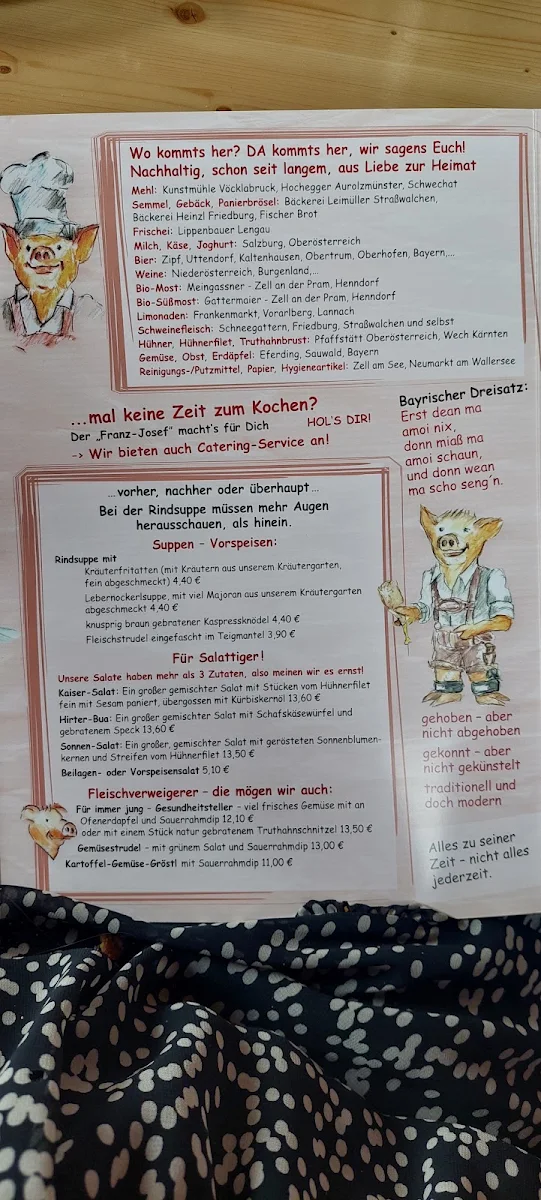 Wo kommts her? DA kommts her, wir sagens Euch!
Nachhaltig, schon seit langem, aus Liebe zur Heimat
Mehl: Kunstmühle Vöcklabruck, Hochegger Aurolzmünster, Schwechat
Semmel, Gebäck, Panierbrösel: Bäckerei Leimüller Straßwalchen,
Bäckerei Heinzl Friedburg, Fischer Brot
Frischei: Lippenbauer Lengau
Milch, Käse, Joghurt: Salzburg, Oberösterreich
Bier: Zipf, Uttendorf, Kaltenhausen, Obertrum, Oberhofen, Bayern,...
Weine: Niederösterreich, Burgenland,...
Bio-Most: Meingassner - Zell an der Pram, Henndorf
Bio-Süßmost: Gattermaier - Zell an der Pram, Henndorf
Limonaden: Frankenmarkt, Vorarlberg, Lannach
Schweinefleisch: Schneegattern, Friedburg, Straßwalchen und selbst
Hühner, Hühnerfilet, Truthahnbrust: Pfaffstätt Oberösterreich, Wech Kärnten
Gemüse, Obst, Erdäpfel: Eferding, Sauwald, Bayern
Reinigungs-/Putzmittel, Papier, Hygieneartikel: Zell am See, Neumarkt am Wallersee
...mal keine Zeit zum Kochen?
Der „Franz-Josef" macht's für Dich HOL'S DIR!
-> Wir bieten auch Catering-Service an!
Bayrischer Dreisatz:
Erst dean ma
amoi nix,
donn miaß ma
amoi schaun,
und donn wean
ma scho seng'n.
...vorher, nachher oder überhaupt...
Bei der Rindsuppe müssen mehr Augen
herausschauen, als hinein.
Suppen - Vorspeisen:
Rindsuppe mit
Kräuterfritatten (mit Kräutern aus unserem Kräutergarten,
fein abgeschmeckt) 4,40 €
Lebernockerlsuppe, mit viel Majoran aus unserem Kräutergarten
abgeschmeckt 4,40 €
knusprig braun gebratener Kaspressknödel 4,40 €
Fleischstrudel eingefascht im Teigmantel 3,90 €
Für Salattiger!
Unsere Salate haben mehr als 3 Zutaten, also meinen wir es ernst!
Kaiser-Salat: Ein großer gemischter Salat mit Stücken vom Hühnerfilet
fein mit Sesam paniert, übergossen mit Kürbiskernöl 13,60 €
Hirter-Bua: Ein großer gemischter Salat mit Schafskäsewürfel und
gebratenem Speck 13,60 €
Sonnen-Salat: Ein großer, gemischter Salat mit gerösteten Sonnenblumen-
kernen und Streifen vom Hühnerfilet 13,50 €
Beilagen- oder Vorspeisensalat 5,10 €
Fleischverweigerer - die mögen wir auch:
Für immer jung - Gesundheitsteller - viel frisches Gemüse mit an
Ofenerdapfel und Sauerrahmdip 12,10 €
oder mit einem Stück natur gebratenem Truthahnschnitzel 13,50 €
Gemüsestrudel - mit grünem Salat und Sauerrahmdip 13,00 €
Kartoffel-Gemüse-Gröstl mit Sauerrahmdip 11,00 €
gehoben - aber
nicht abgehoben
gekonnt - aber
nicht gekünstelt
traditionell und
doch modern
Alles zu seiner
Zeit - nicht alles
jederzeit.